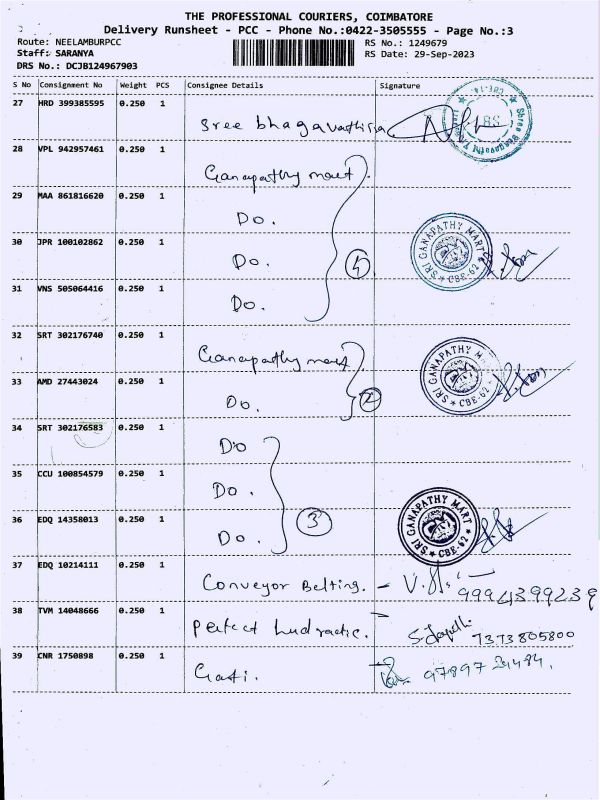 THE PROFESSIONAL COURIERS, COIMBATORE
Delivery Runsheet - PCC - Phone No.:0422-3505555 - Page No.:3
Route: NEELAMBURPCC RS No.: 1249679
Staff: SARANYA RS Date: 29-Sep-2023
DRS No.: DCJB124967903
S No Consignment No Weight PCS Consignee Details Signature
27 HRD 399385595 0.250 1
Sree bhagavathi
CBE-14
SBS
28 VPL 942957461 0.250 1
Ganapathy mart.
29 MAA 861816620 0.250 1
Do.
30 JPR 100102862 0.250 1
Do. 4
SRI GANAPATHY MART
CBE-62
31 VNS 505064416 0.250 1
Do.
32 SRT 302176740 0.250 1
Ganapathy mart
33 AMD 27443024 0.250 1
Do. 2
SRI GANAPATHY MART
CBE-62
34 SRT 302176583 0.250 1
Do
35 CCU 100854579 0.250 1
Do.
36 EDQ 14358013 0.250 1
Do. 3
SRI GANAPATHY MART
CBE-62
37 EDQ 10214111 0.250 1
Conveyor Belting. - 9994399239
38 TVM 14048666 0.250 1
Perfect hudractic. 7373805800
39 CNR 1750898 0.250 1
Gati.